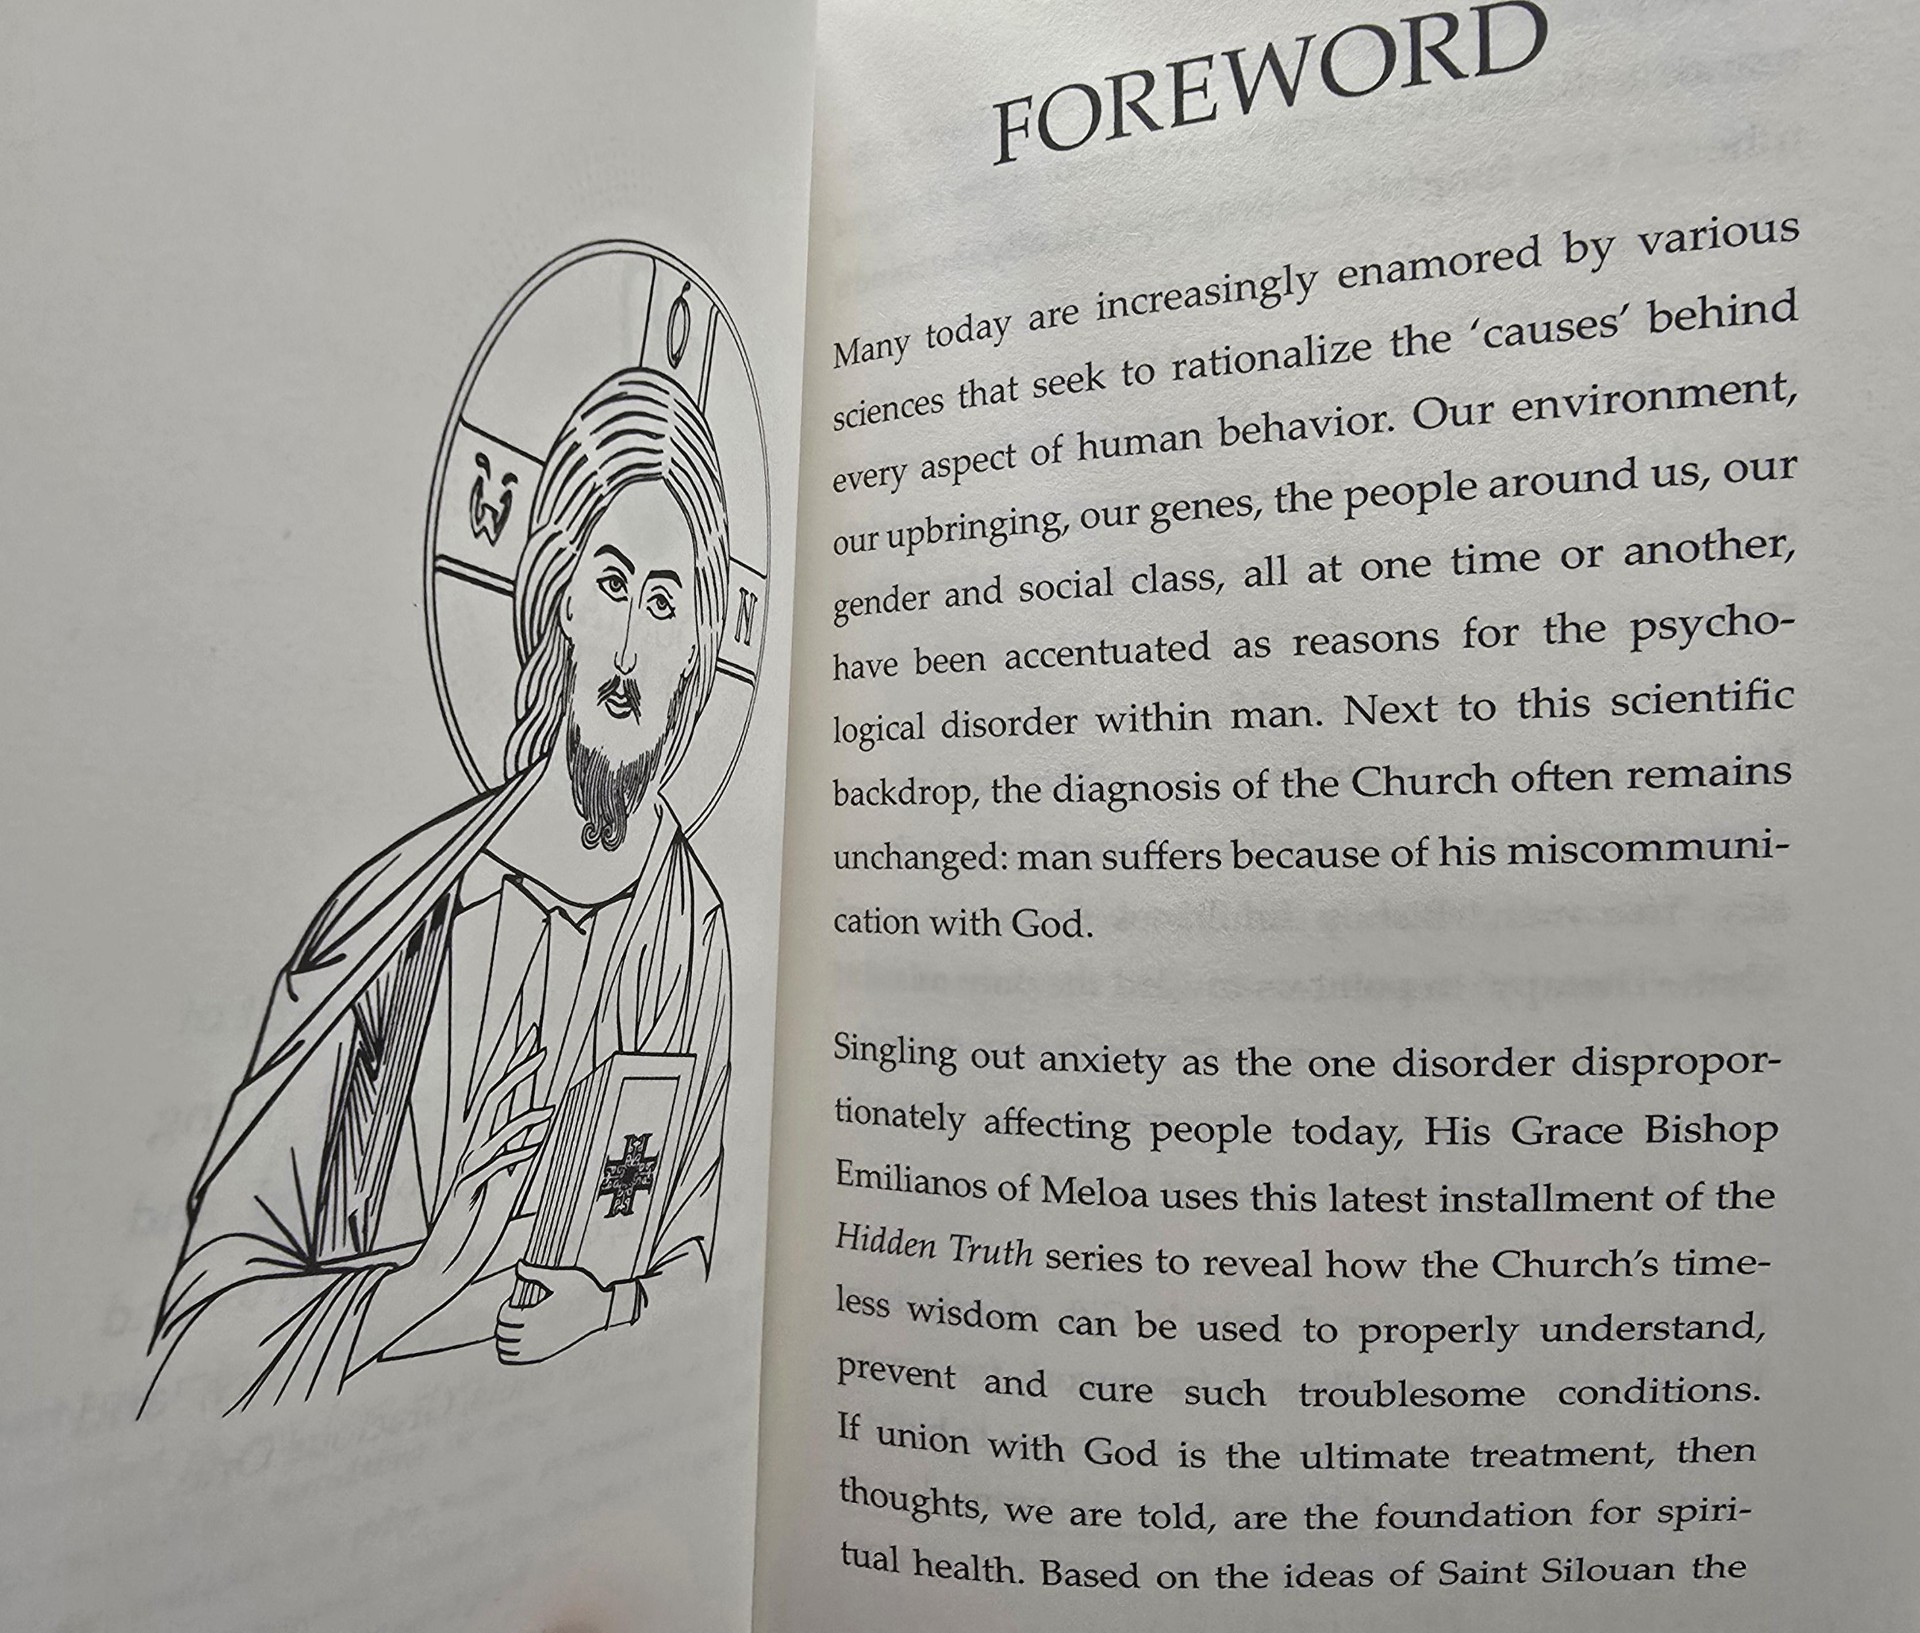 Ὁ
Ὤ
Ν
FOREWORD
Many today are increasingly enamored by various
sciences that seek to rationalize the ‘causes’ behind
every aspect of human behavior. Our environment,
our upbringing, our genes, the people around us, our
gender and social class, all at one time or another,
have been accentuated as reasons for the psycho-
logical disorder within man. Next to this scientific
backdrop, the diagnosis of the Church often remains
unchanged: man suffers because of his miscommuni-
cation with God.
Singling out anxiety as the one disorder dispropor-
tionately affecting people today, His Grace Bishop
Emilianos of Meloa uses this latest installment of the
Hidden Truth series to reveal how the Church’s time-
less wisdom can be used to properly understand,
prevent and cure such troublesome conditions.
If union with God is the ultimate treatment, then
thoughts, we are told, are the foundation for spiri-
tual health. Based on the ideas of Saint Silouan the